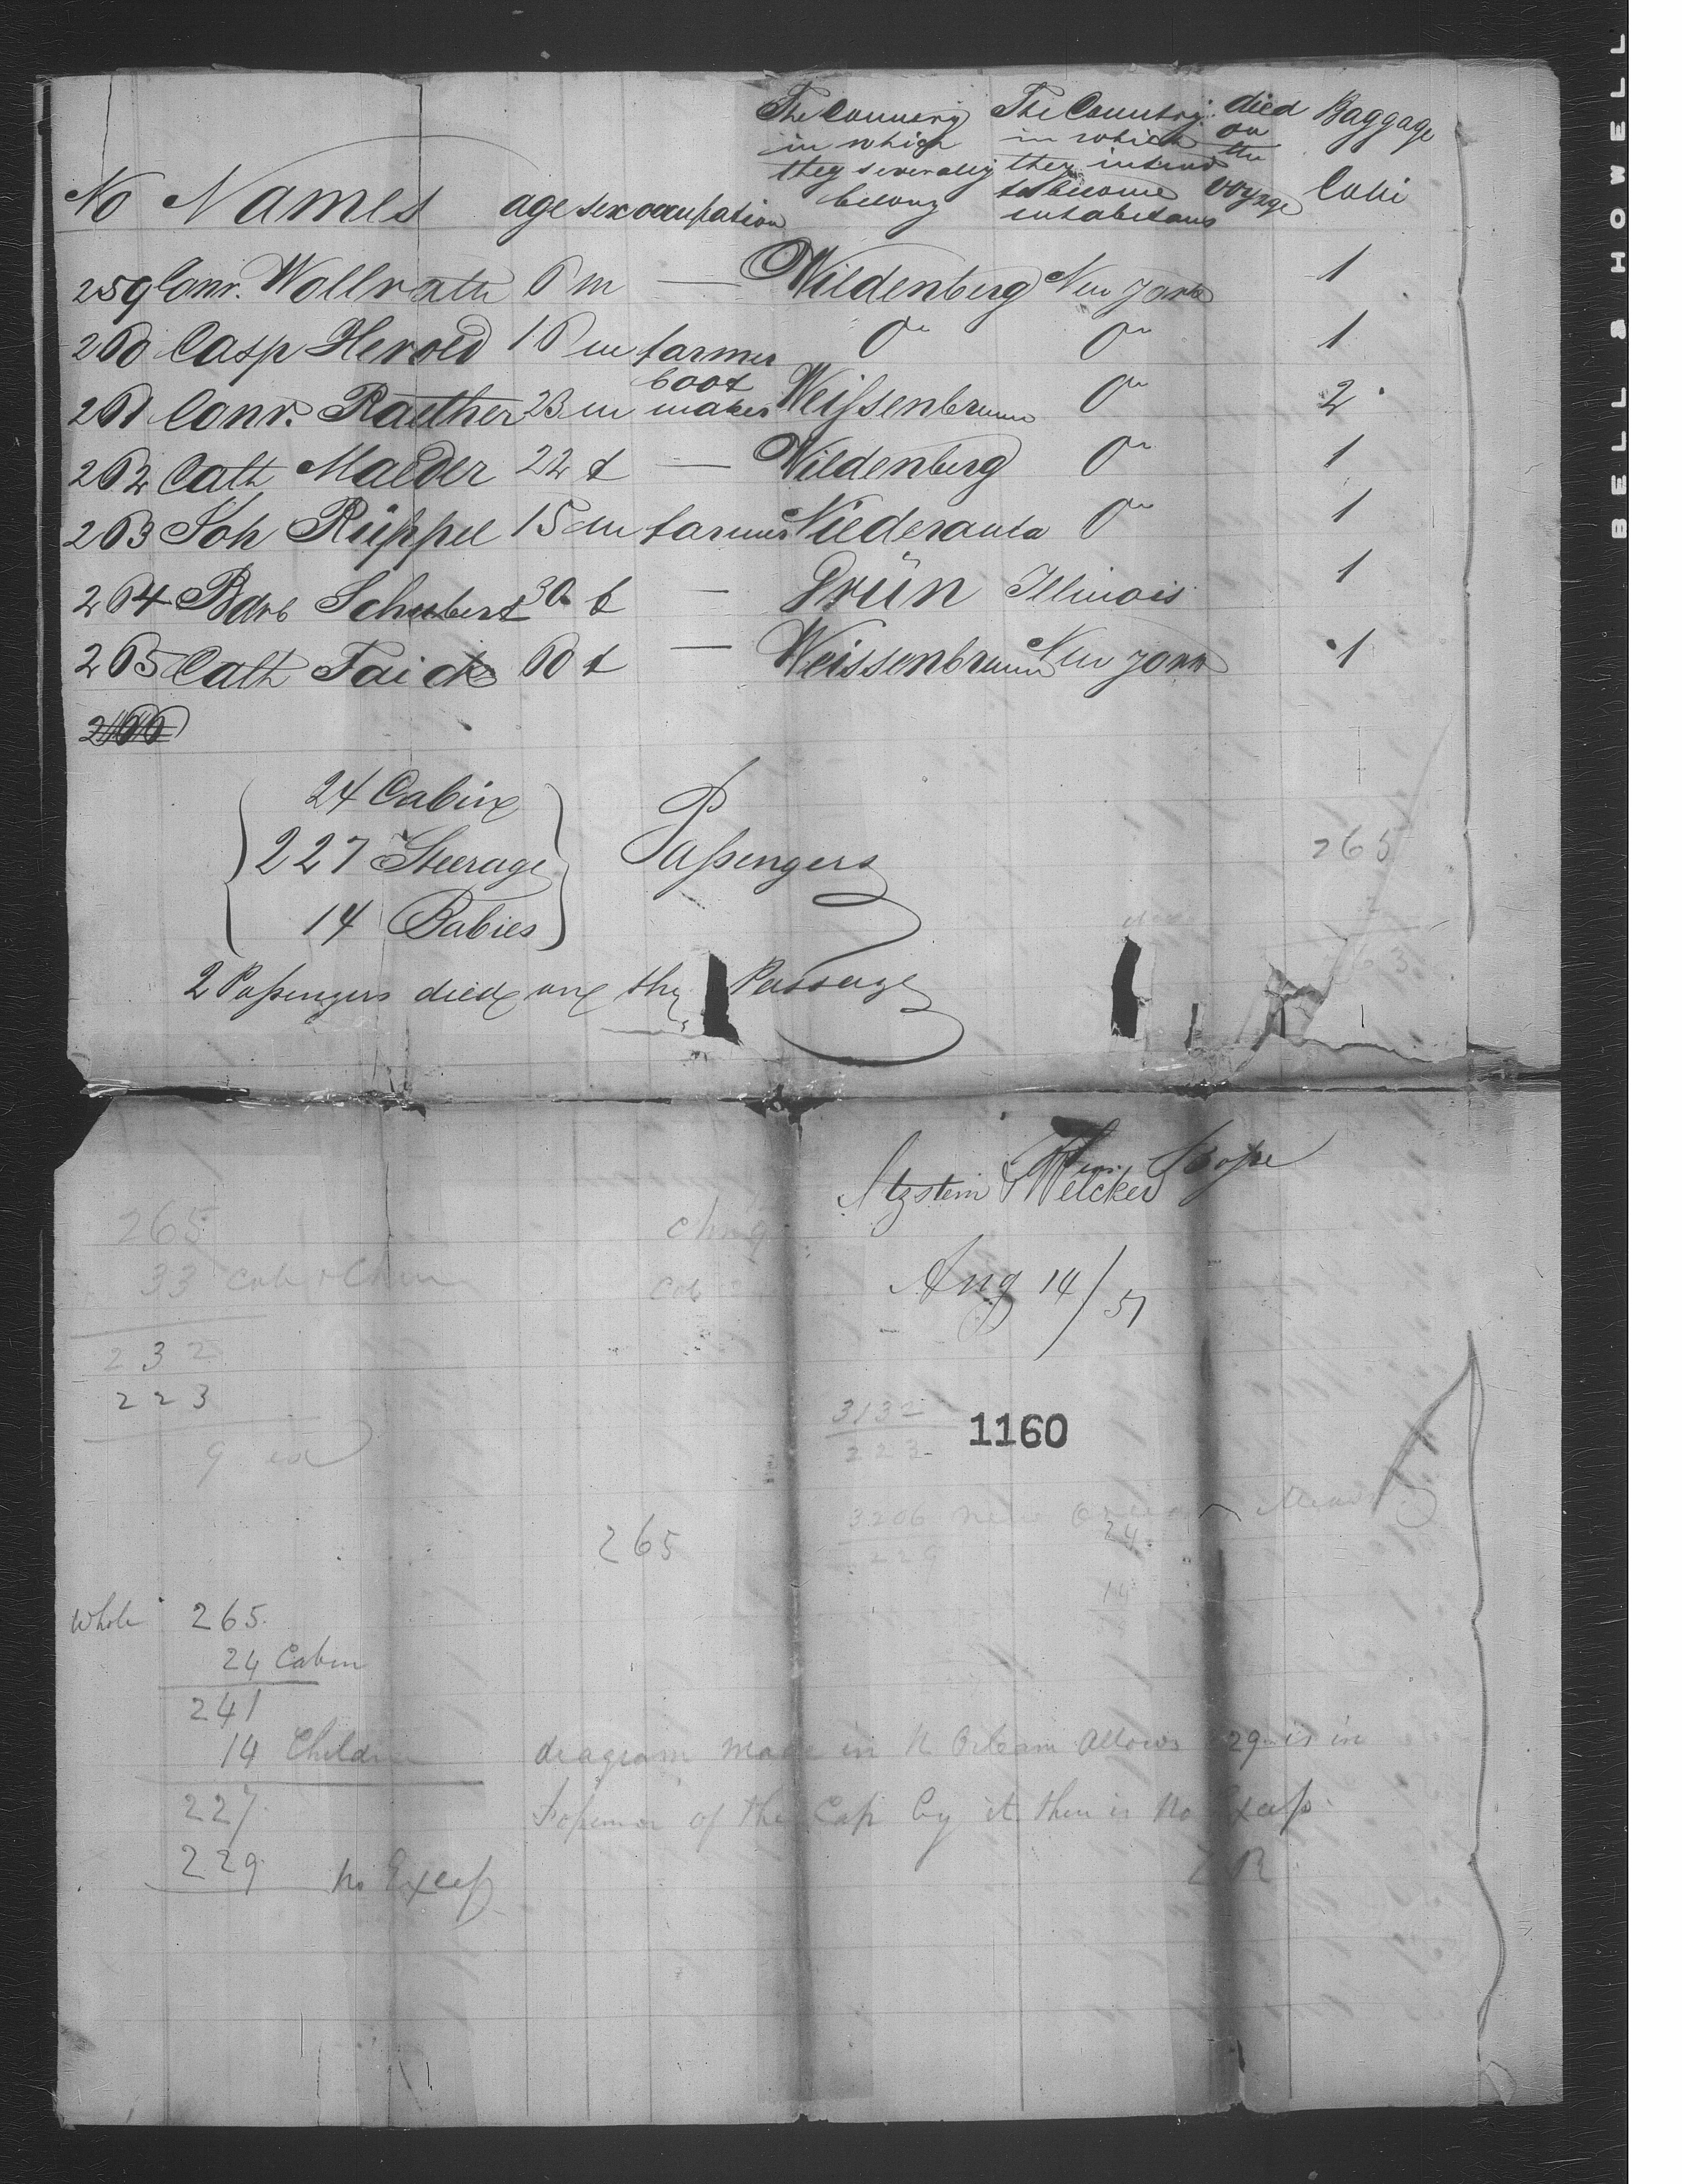 No Names age sex occupation The Country in which they severally belong The Country in which they intend to become inhabitans died on the voyage Baggage Colli
259 Conr. Wollrath 6 m — Wildenberg New York 1
260 Casp Herold 16 m farmer do do 1
261 Conr. Raether 23 m boot maker Weißenbrunn do 2
262 Cath Maeder 22 f — Wildenberg do 1
263 Joh Rüppel 15 m farmer Niederaula do 1
264 Barb Schubert 30 f — Grün Illinois 1
265 Cath Faick 60 f — Weissenbrunn New York 1
266
24 Cabin
227 Steerage Paßengers
14 Babies
265
2 Paßengers died on the Passage
Atzstein & Welcker
Aug 14/51
265
33
232
223
9
3132
223
1160
3206
229
24
14
265
Whole 265
24 Cabin
241
14 Children
227
229 no Exceß
diagram made in N Orleans allows 229 is in
of the Cap by it then is no Exceß